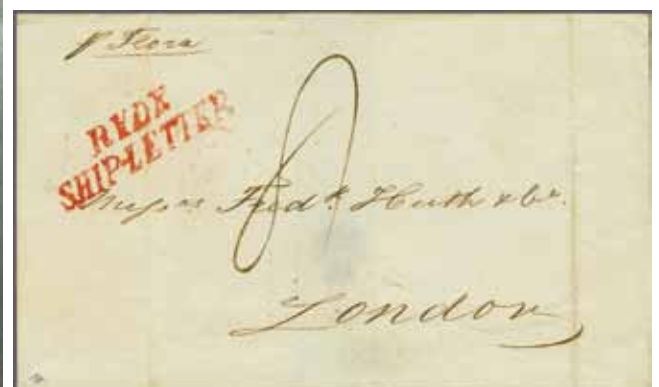 p Flora
RYDE
SHIP-LETTER
8
Messrs Fredk. Huth & Co.
London